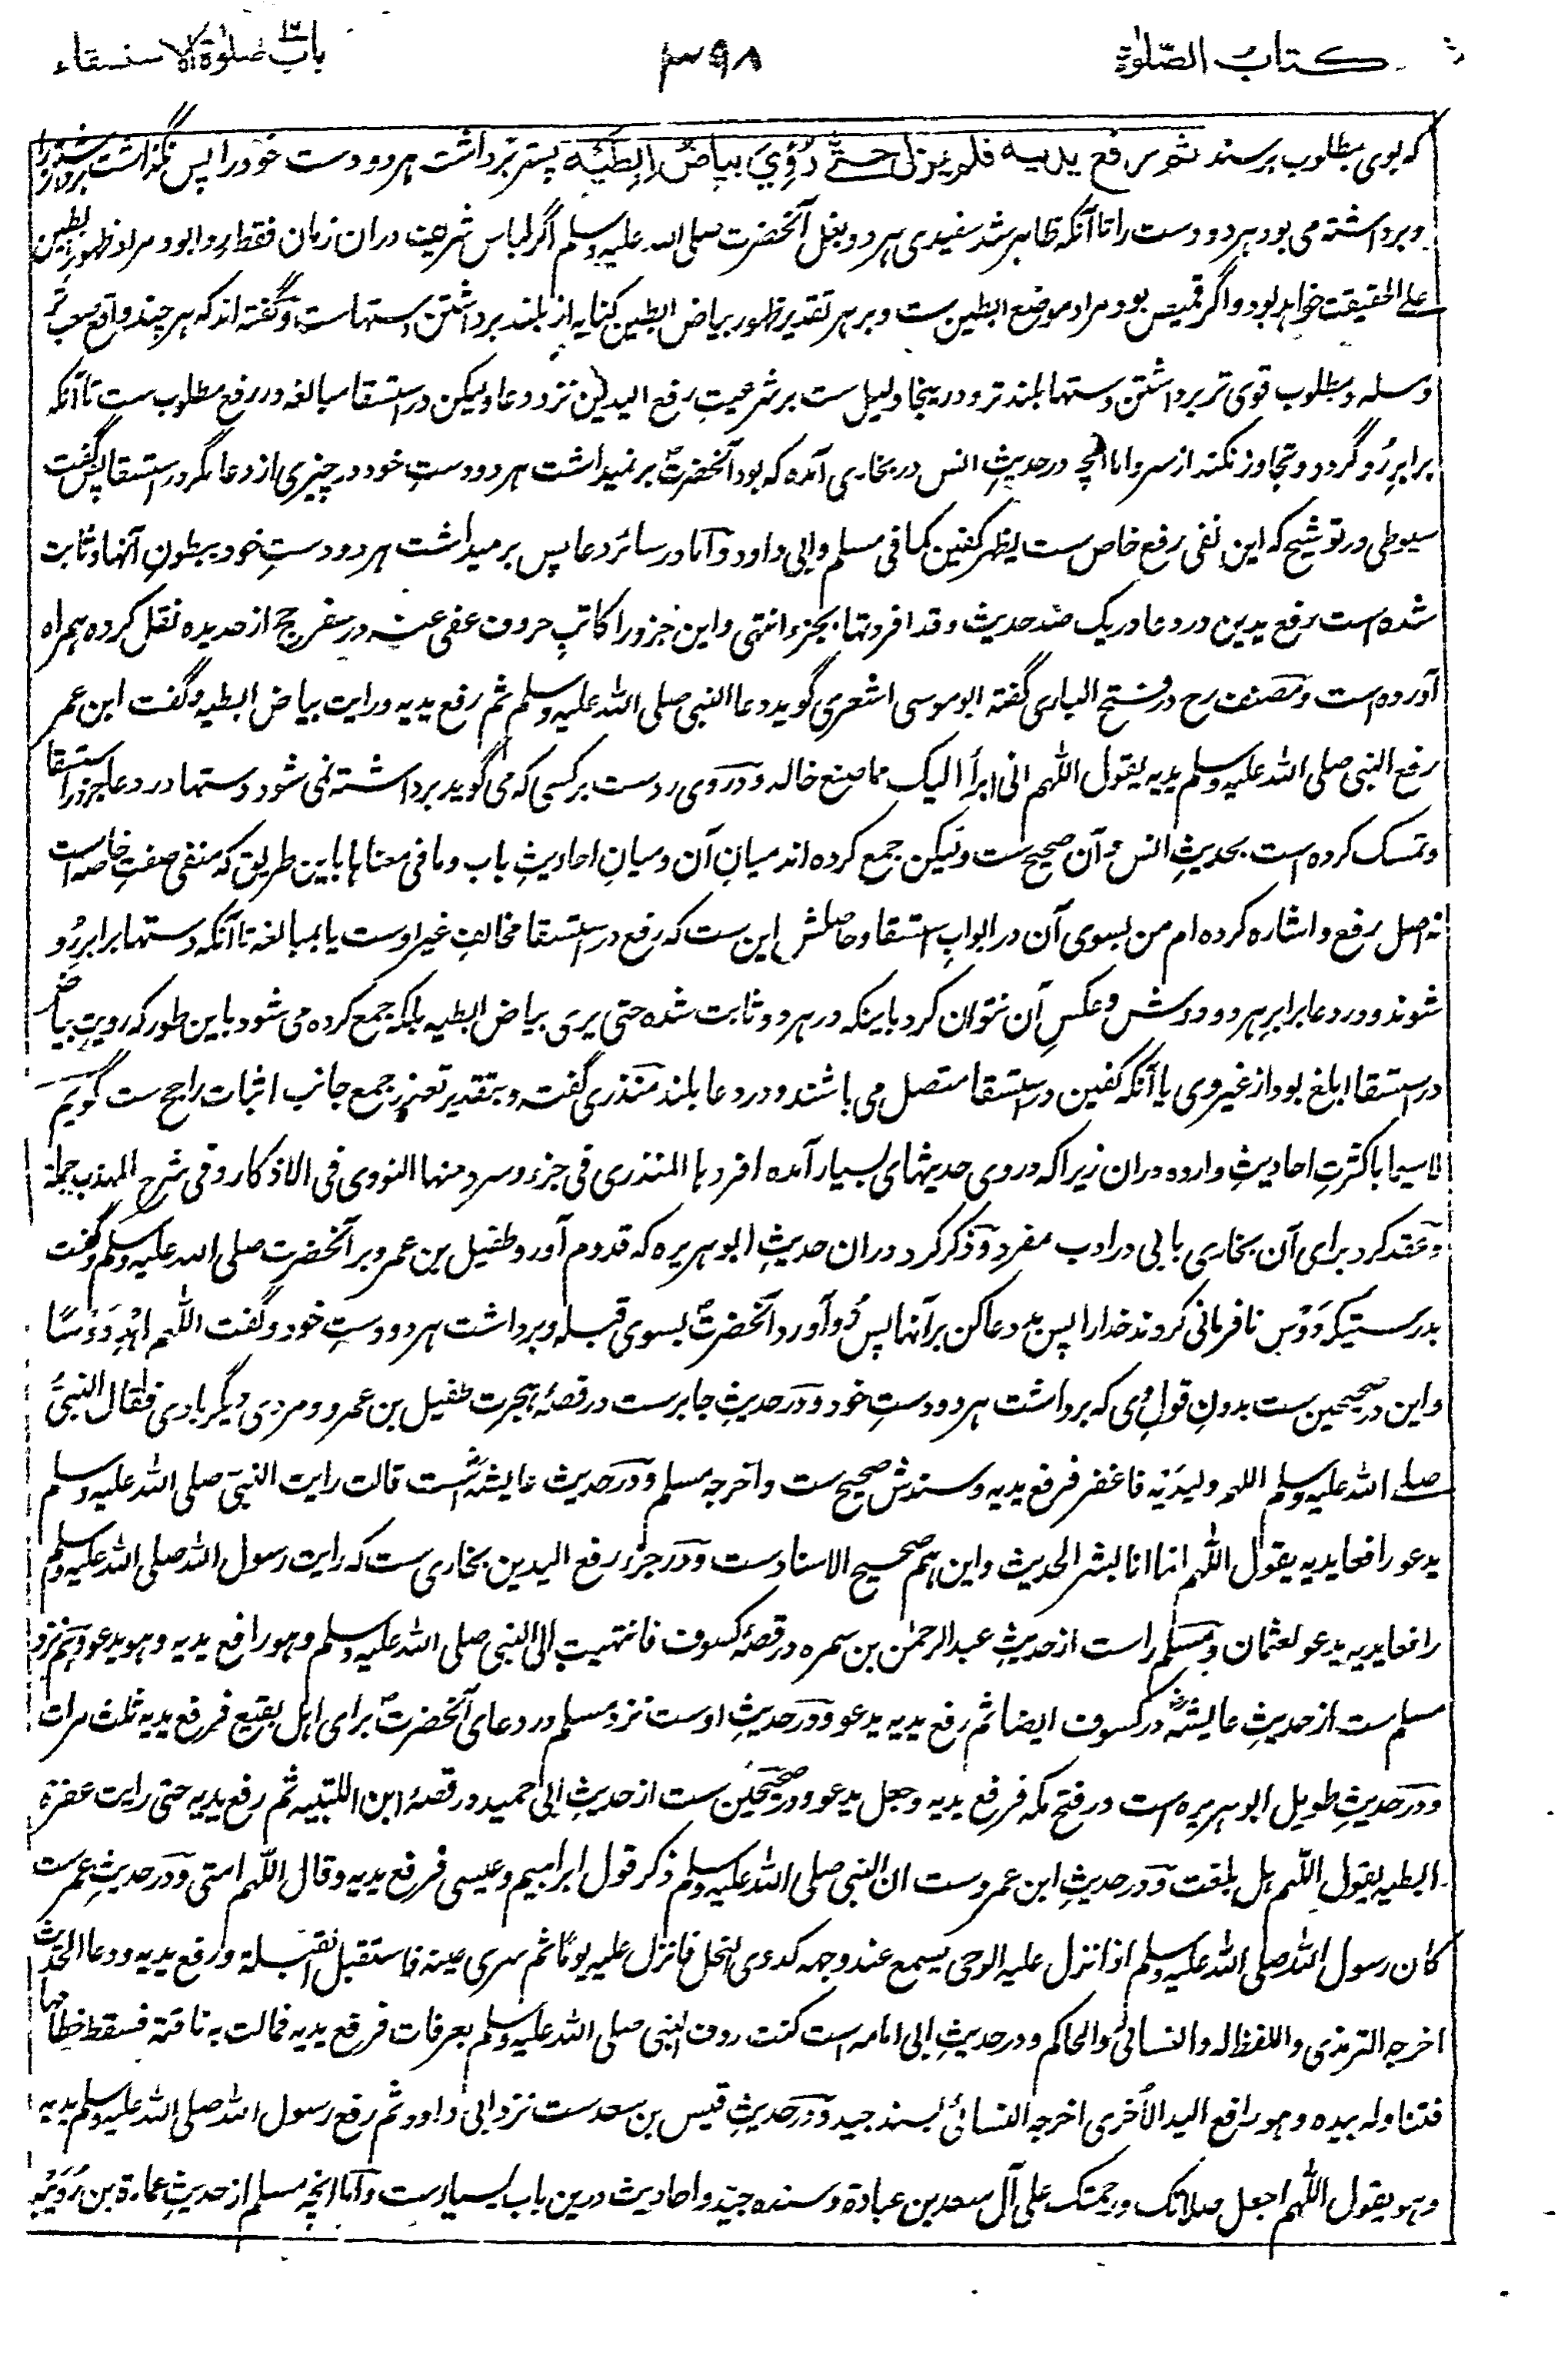 كتاب الصّلوٰة
۳۹۸
باب صلوٰة الاستسقاء
که بوی مطلوب برسند ثم رفع يديه فلم يزل حتّى رُؤِيَ بياضُ اِبِطَيْهِ پستر برداشت هر دو دست خود را پس نگذاشت
و برداشته می بود هر دو دست را تا آنکه ظاهر شد سفیدی هر دو بغل آنحضرت صلی الله علیه وسلم اگر لباس شریف دران زمان فقط ردا بود مراد ظهور ابطین
علی الحقیقت خواهد بود و اگر قمیص بود مراد موضع ابطین ست و بر هر تقدیر ظهور بیاض ابطین کنایه از بلند برداشتن دستهاست و گفته اند که هر چند واقع صعب تر
و مطلوب قوی تر برداشتن دستها بلند تر و درینجا دلیل ست بر شرعیتِ رفع الیدین نزد دعا ولیکن در استسقا مبالغه در رفع مطلوب ست تا آنکه
برابرِ رُو گردد و تجاوز نکند از سر و اما آنچه در حدیثِ انس در بخاری آمده که بود آنحضرتؐ بر نمیداشت هر دو دستِ خود در چیزی از دعا مگر در استسقا پس گفت
سیوطی در توشیح که این نفی رفع خاص ست بظهر کفین کما فی مسلم وابی داود و اما در سائر دعا پس بر میداشت هر دو دستِ خود ببطونِ آنها و ثابت
شده است رفع یدین در دعا در یک صد حدیث وقد افردتها بجزء انتهی و این جزو را کاتبِ حروف عفی عنه در سفرِ حج از حدیده نقل کرده همراه
آورده است و مصنف رح در فتح الباری گفته ابو موسی اشعری گوید دعا النبی صلی الله علیه وسلم ثم رفع یدیه ورایت بیاض ابطیه و گفت ابن عمر
رفع النبی صلی الله علیه وسلم یدیه یقول اللهم انی ابرأ الیک مما صنع خالد و در وی رد ست بر کسی که می گوید برداشته نمی شود دستها در دعا جز در استسقا
و تمسک کرده است بحدیثِ انس و آن صحیح ست ولیکن جمع کرده اند میانِ آن و میانِ احادیثِ باب وما فی معناها باین طریق که منفی صفتِ خاصه است
نه اصل رفع و اشاره کرده ام من بسوی آن در ابوابِ استسقا و حاصلش این ست که رفع در استسقا مخالفِ غیر اوست یا بمبالغه تا آنکه دستها برابرِ رُو
شوند و در دعا برابرِ هر دو دوش و عکسِ آن نتوان کرد باینکه در هر دو ثابت شده حتی یری بیاض ابطیه بلکه جمع کرده می شود باین طور که رویتِ بیاض
در استسقا ابلغ بود از غیر وی یا آنکه کفین در استسقا متصل می باشند و در دعا بلند منذری گفته و بتقدیر تعذر جمع جانب اثبات راجح ست گویم
لا سیما با کثرتِ احادیثِ وارده دران زیرا که در وی حدیثهای بسیار آمده افردها المنذری فی جزء وسرد منها النووی فی الاذکار وفی شرح المهذب جملة
و عقد کرد برای آن بخاری بابی در ادب مفرد و ذکر کرد دران حدیثِ ابو هریره که قدوم آورد طفیل بن عمرو بر آنحضرت صلی الله علیه وسلم و گفت
بدرستیکه دَوْس نافرمانی کردند خدا را پس بد دعا کن بر آنها پس رُو آورد آنحضرتؐ بسوی قبله و برداشت هر دو دستِ خود و گفت اللهم اهْدِ دَوْسًا
و این در صحیحین ست بدونِ قولِ وی که برداشت هر دو دستِ خود و در حدیثِ جابر ست در قصهٔ هجرت طفیل بن عمرو و مردی دیگر با وی فقال النبیُّ
صلی الله علیه وسلم اللهم ولیدَیْهِ فاغفر فرفع یدیه و سندش صحیح ست واخرجه مسلم و در حدیث عایشهؓ است قالت رایت النبیَ صلی الله علیه وسلم
یدعو رافعا یدیه یقول اللهم انما انا بشر الحدیث و این هم صحیح الاسناد ست و در جزء رفع الیدین بخاری ست که رایت رسول الله صلی الله علیه وسلم
رافعا یدیه یدعو لعثمان و مسلم راست از حدیثِ عبدالرحمٰن بن سمره در قصهٔ کسوف فانتهیت الی النبی صلی الله علیه وسلم وهو رافع یدیه وهو یدعو و هم نزد
مسلم ست از حدیثِ عایشهؓ در کسوف ایضا ثم رفع یدیه یدعو و در حدیثِ اوست نزد مسلم در دعای آنحضرتؐ برای اهلِ بقیع فرفع یدیه ثلث مرات
و در حدیثِ طویل ابو هریره است در فتح مکه فرفع یدیه وجعل یدعو و در صحیحین ست از حدیثِ ابی حمید در قصهٔ ابن اللتبیه ثم رفع یدیه حتی رایت عفرة
ابطیه یقول اللهم هل بلغت و در حدیثِ ابن عمرو ست ان النبی صلی الله علیه وسلم ذکر قول ابراهیم وعیسی فرفع یدیه وقال اللهم امتی و در حدیثِ عمر ست
کان رسول الله صلی الله علیه وسلم اذا نزل علیه الوحی یسمع عند وجهه کدوی النحل فانزل علیه یومًا ثم سری عنه فاستقبل القبلة ورفع یدیه ودعا الحدیث
اخرجه الترمذی واللفظ له والنسائی والحاکم و در حدیثِ ابی امامه است کنت ردف النبی صلی الله علیه وسلم بعرفات فرفع یدیه فمالت به ناقته فسقط خطامها
فتناوله بیده وهو رافع الید الاُخری اخرجه النسائی بسند جید و در حدیثِ قیس بن سعد ست نزد ابی داود ثم رفع رسول الله صلی الله علیه وسلم یدیه
وهو یقول اللهم اجعل صلاتک ورحمتک علی آلِ سعد بن عبادة وسنده جیّد و احادیث درین باب بسیار ست و اما آنچه مسلم از حدیثِ عمارة بن رُوَیْبه